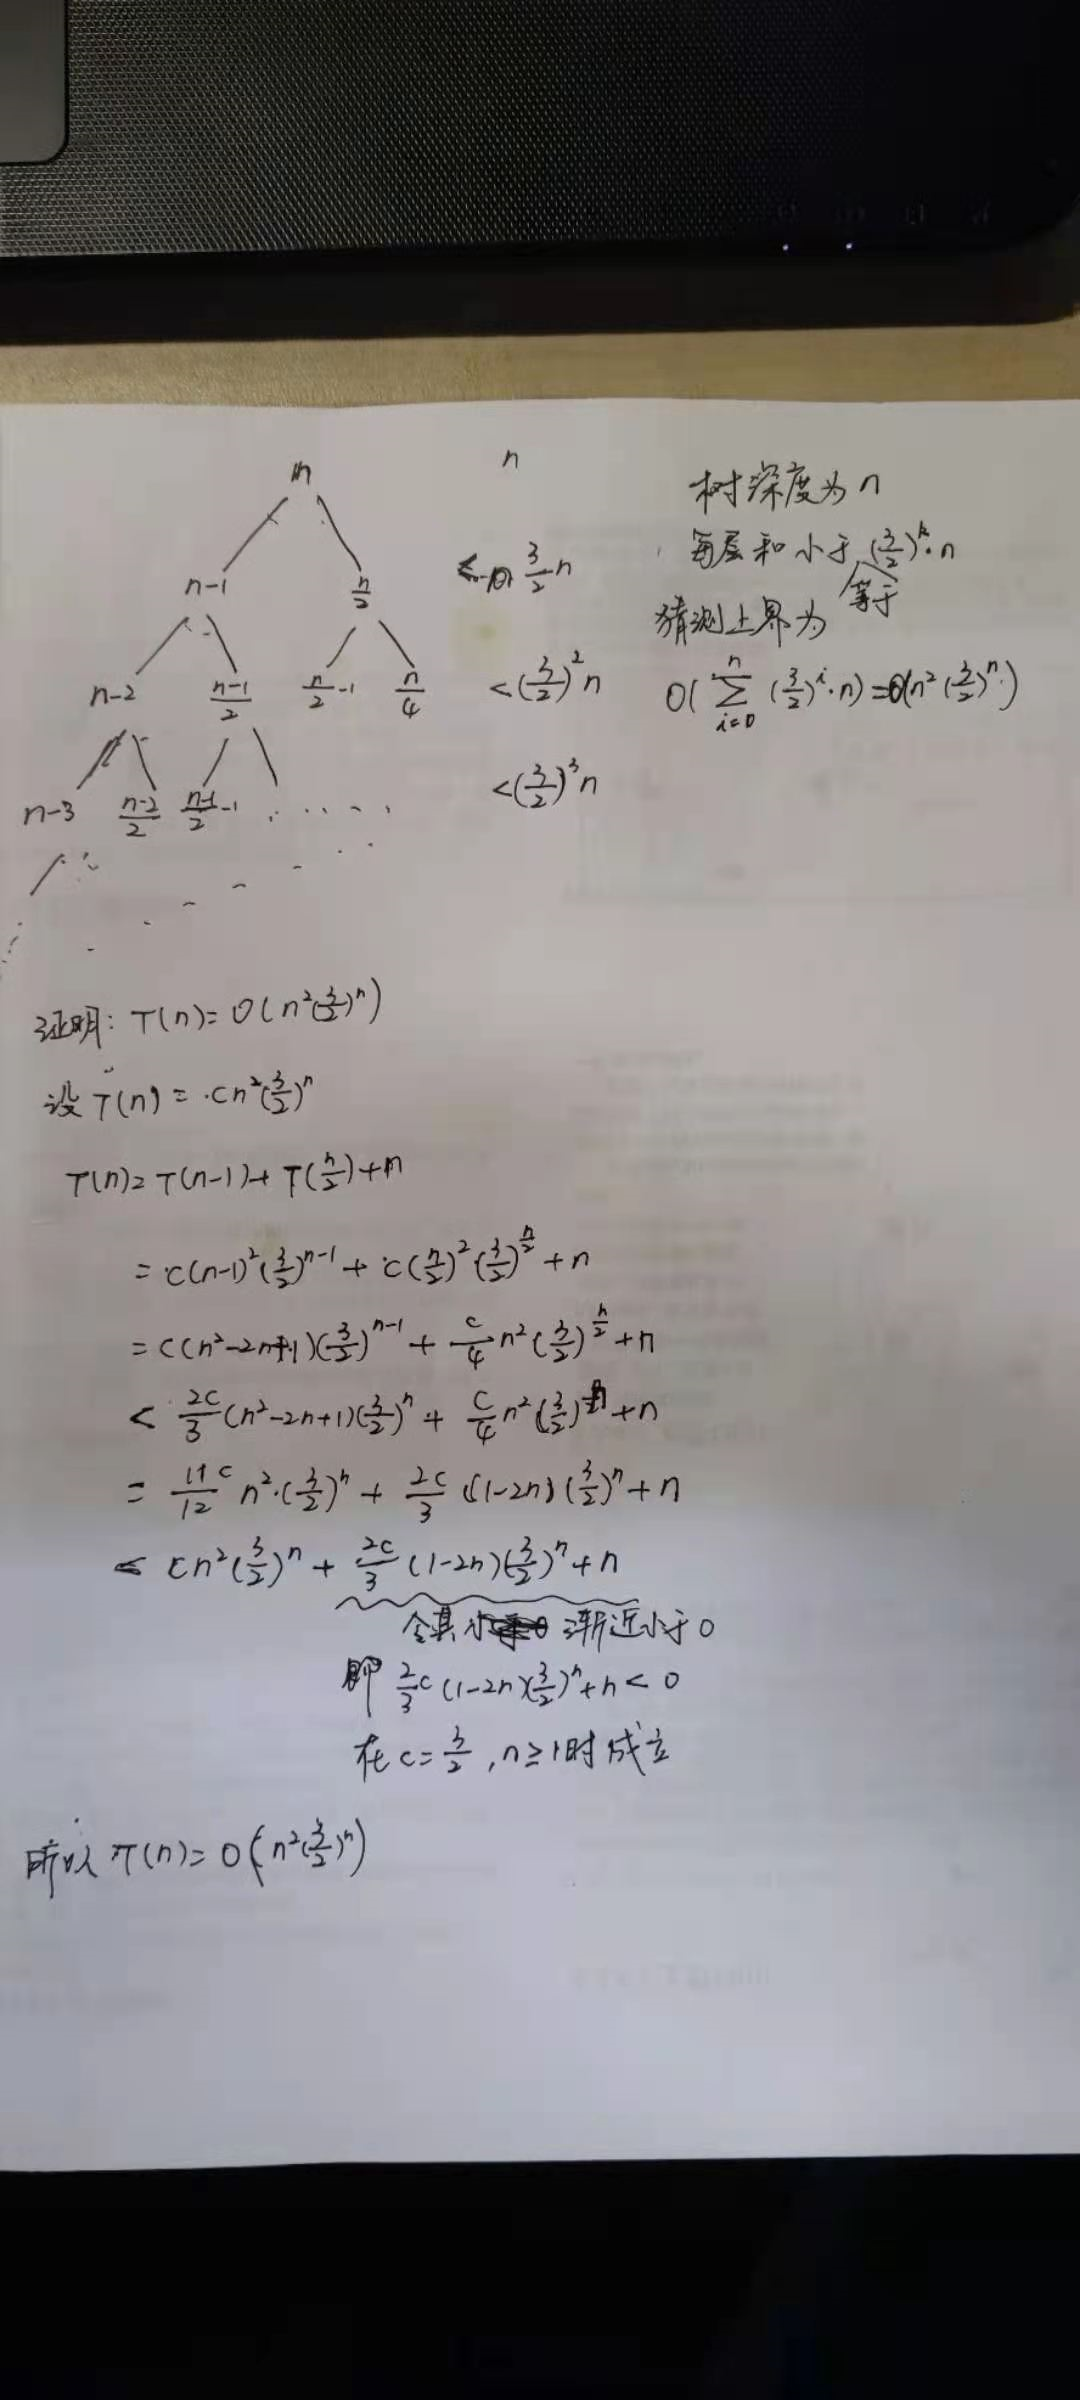 n n
n-1 n/2 ≤ 3/2 n
n-2 (n-1)/2 n/2-1 n/4 <(3/2)²n
n-3 (n-2)/2 (n-1)/2-1 ...... <(3/2)³n
树深度为n
每层和小于(3/2)^k·n
等于
猜测上界为
O(∑_{i=0}^{n} (3/2)^i·n)=O(n²(3/2)^n)
证明: T(n)= O(n²(3/2)^n)
设 T(n) = cn²(3/2)^n
T(n)= T(n-1)+ T(n/2)+n
= c(n-1)²(3/2)^{n-1} + c(n/2)²(3/2)^{n/2} + n
= c(n²-2n+1)(3/2)^{n-1} + c/4 n²(3/2)^{n/2} + n
< 2c/3 (n²-2n+1)(3/2)^n + c/4 n²(3/2)^n + n
= 11/12 c n²·(3/2)^n + 2c/3 (1-2n)(3/2)^n + n
≤ cn²(3/2)^n + 2c/3 (1-2n)(3/2)^n + n
令其 渐近小于0
即 2/3 c (1-2n)(3/2)^n + n < 0
在 c= 3/2 , n≥1时成立
所以 T(n)= O(n²(3/2)^n)